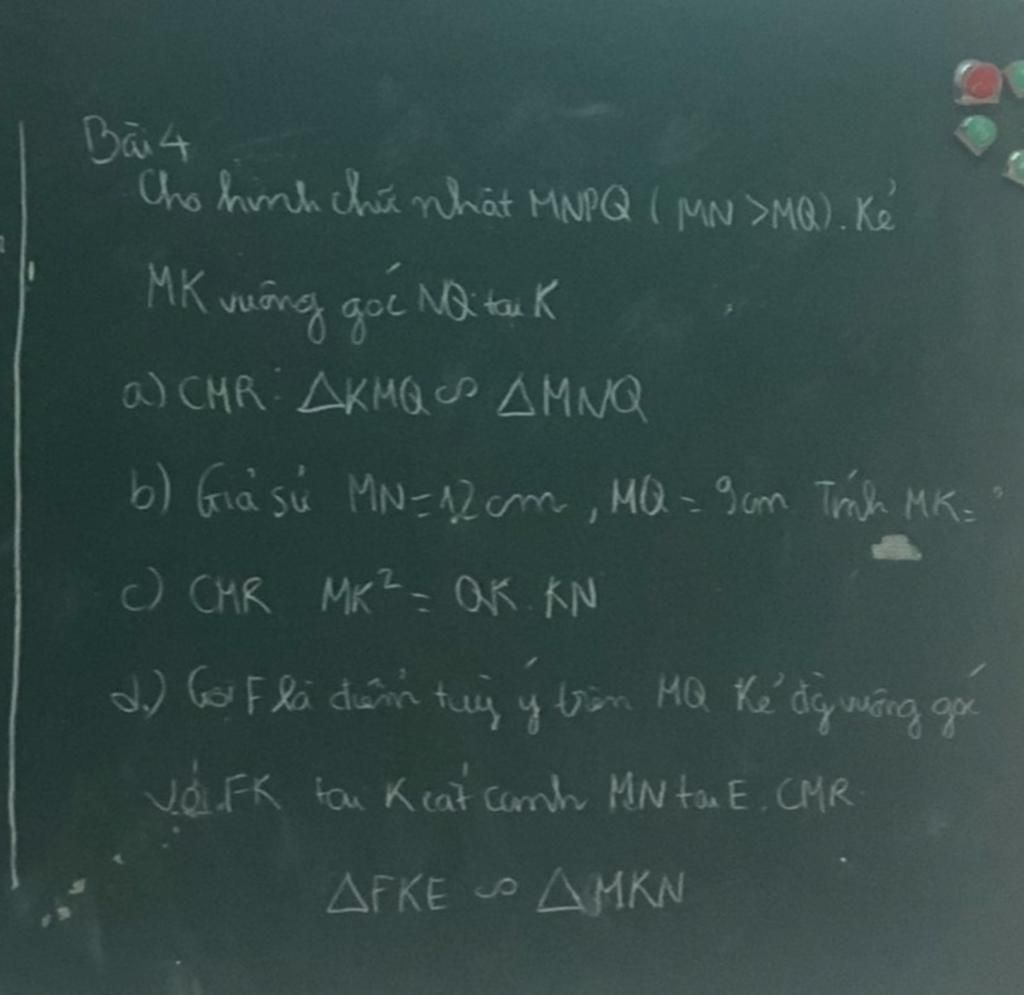 Bài 4
Cho hình chữ nhật MNPQ ( MN >MQ). Kẻ
MK vuông góc NQ tại K
a) CMR: ΔKMQ ∽ ΔMNQ
b) Giả sử MN=12cm, MQ = 9cm Tính MK=?
c) CMR MK² = QK.KN
d.) Gọi F là điểm tuỳ ý trên MQ Kẻ đg vuông góc
với FK tại K cắt cạnh MN tại E. CMR
ΔFKE ∽ ΔMKN